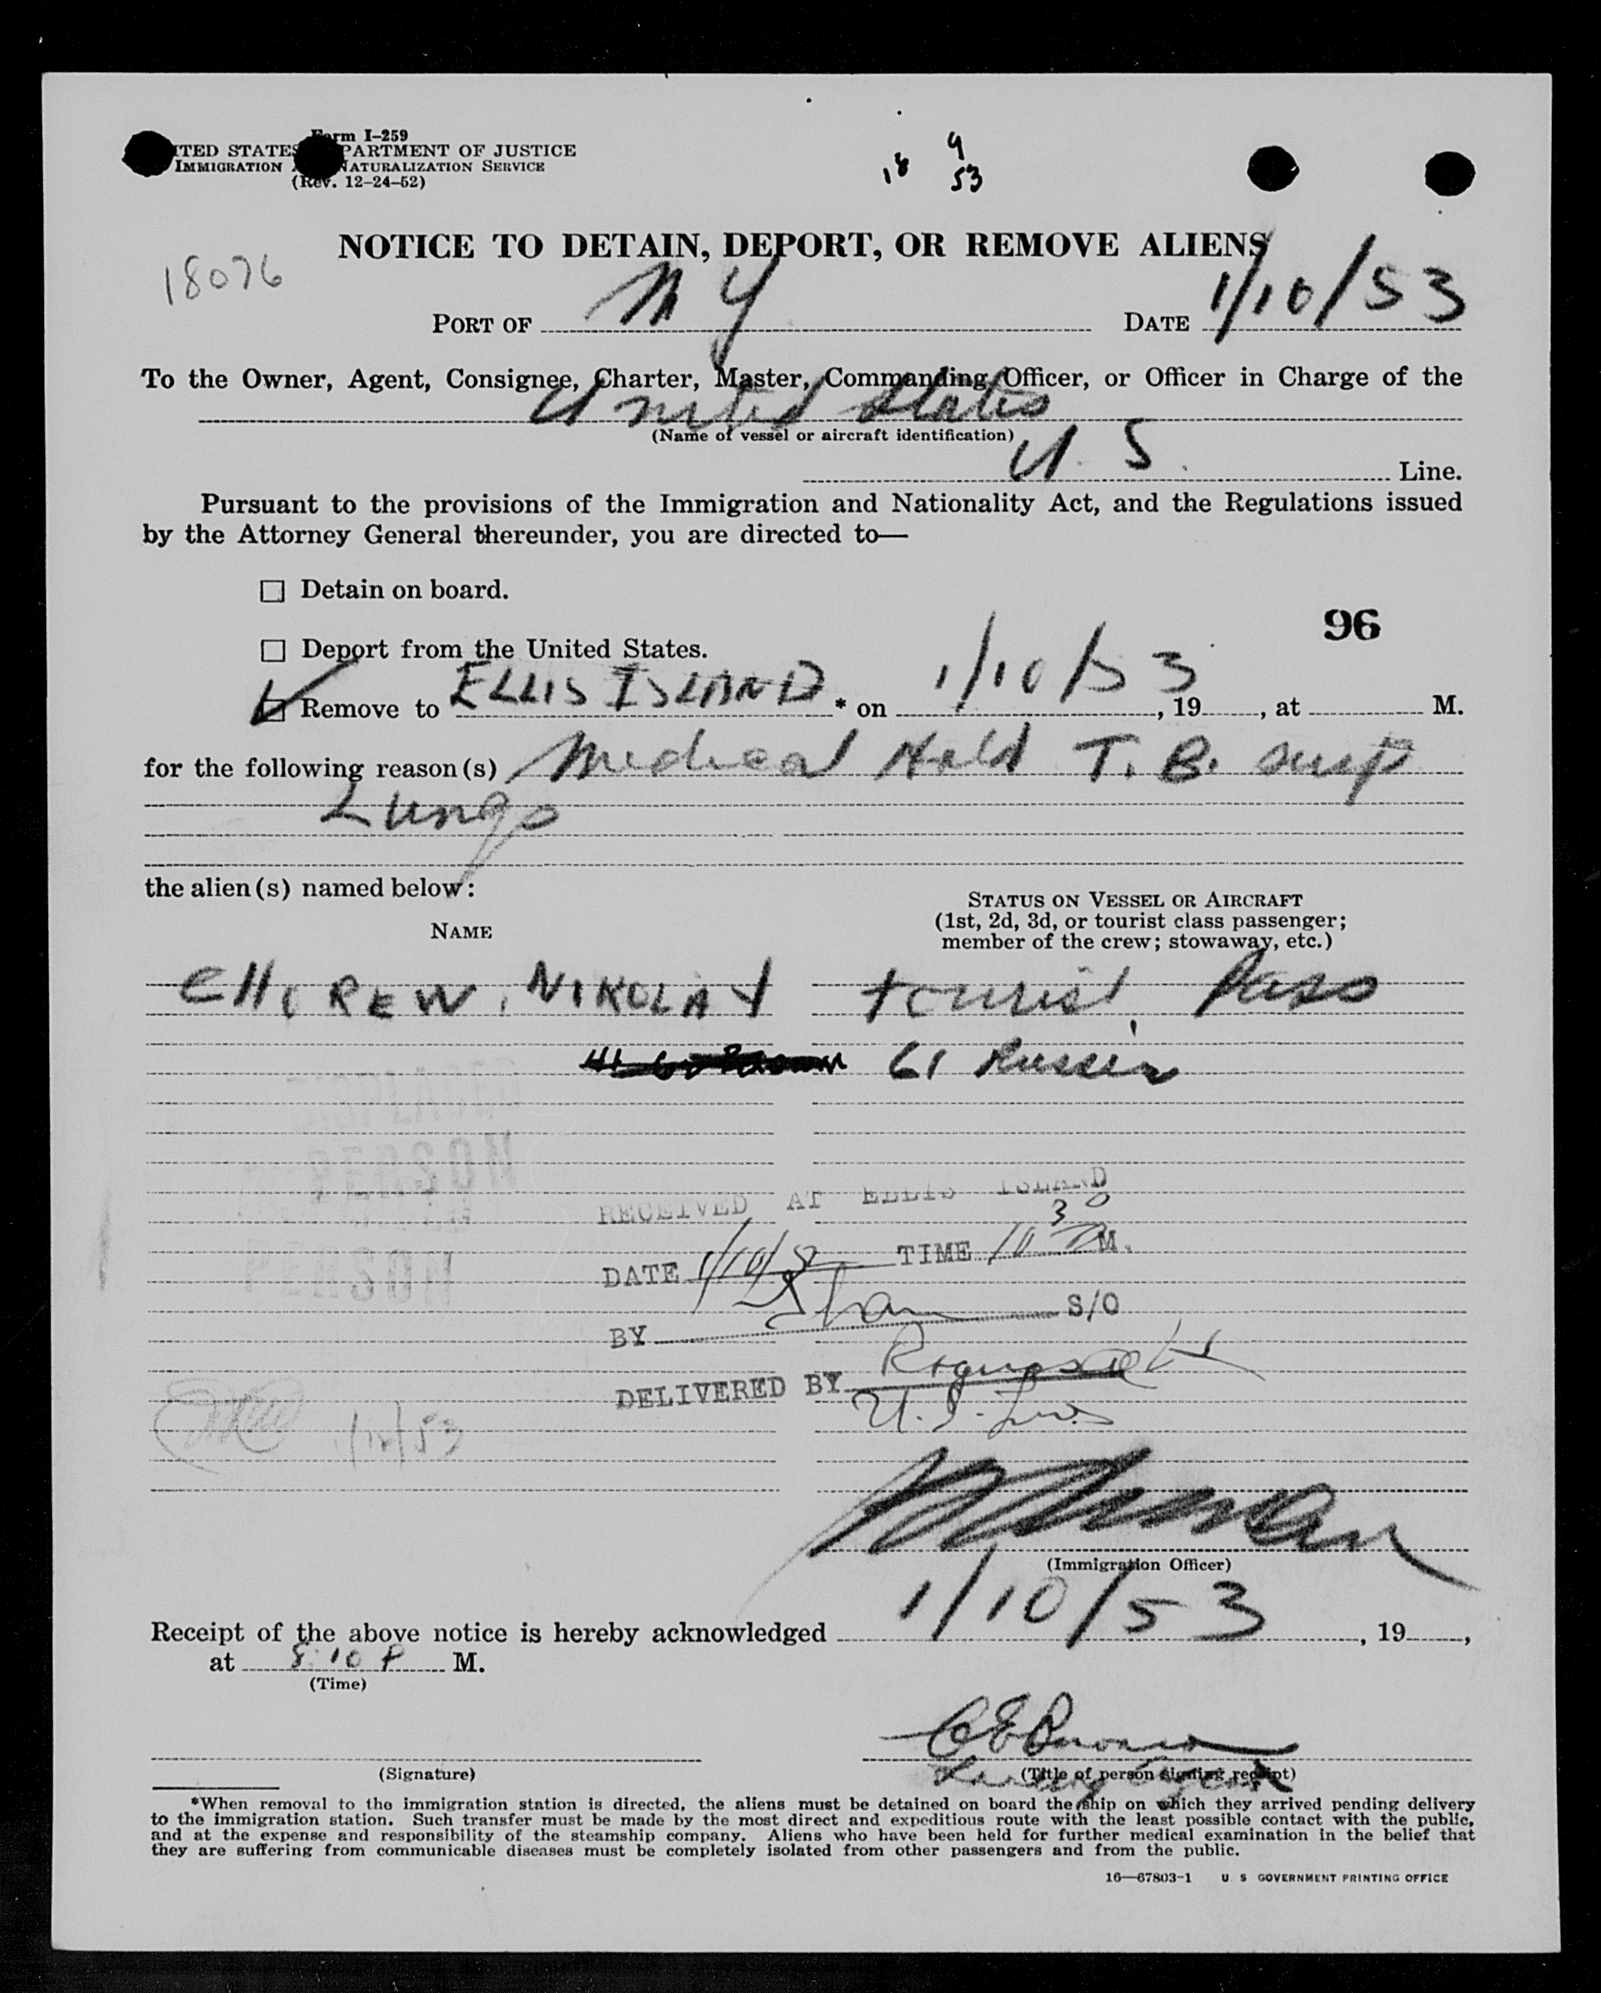 Form I-259
UNITED STATES DEPARTMENT OF JUSTICE
IMMIGRATION AND NATURALIZATION SERVICE
(Rev. 12-24-52)
18 9
53
NOTICE TO DETAIN, DEPORT, OR REMOVE ALIENS
18076
PORT OF N Y DATE 1/10/53
To the Owner, Agent, Consignee, Charter, Master, Commanding Officer, or Officer in Charge of the
United States
(Name of vessel or aircraft identification)
U. S. Line.
Pursuant to the provisions of the Immigration and Nationality Act, and the Regulations issued
by the Attorney General thereunder, you are directed to—
Detain on board.
96
Deport from the United States.
Remove to ELLIS ISLAND * on 1/10/53, 19, at M.
for the following reason(s) Medical Hold T. B. susp
Lungs
the alien(s) named below:
NAME
STATUS ON VESSEL OR AIRCRAFT
(1st, 2d, 3d, or tourist class passenger;
member of the crew; stowaway, etc.)
NIKOLAY tourist Pass
61 Russian
RECEIVED AT ELLIS ISLAND
DATE 1/10/53 TIME 10 30 M.
BY S/O
DELIVERED BY
U. S. Lines
1/12/53
(Immigration Officer)
Receipt of the above notice is hereby acknowledged 1/10/53, 19,
at 8:10 P M.
(Time)
(Signature)
(Title of person signing receipt)
*When removal to the immigration station is directed, the aliens must be detained on board the ship on which they arrived pending delivery
to the immigration station. Such transfer must be made by the most direct and expeditious route with the least possible contact with the public,
and at the expense and responsibility of the steamship company. Aliens who have been held for further medical examination in the belief that
they are suffering from communicable diseases must be completely isolated from other passengers and from the public.
16—67803-1 U S GOVERNMENT PRINTING OFFICE